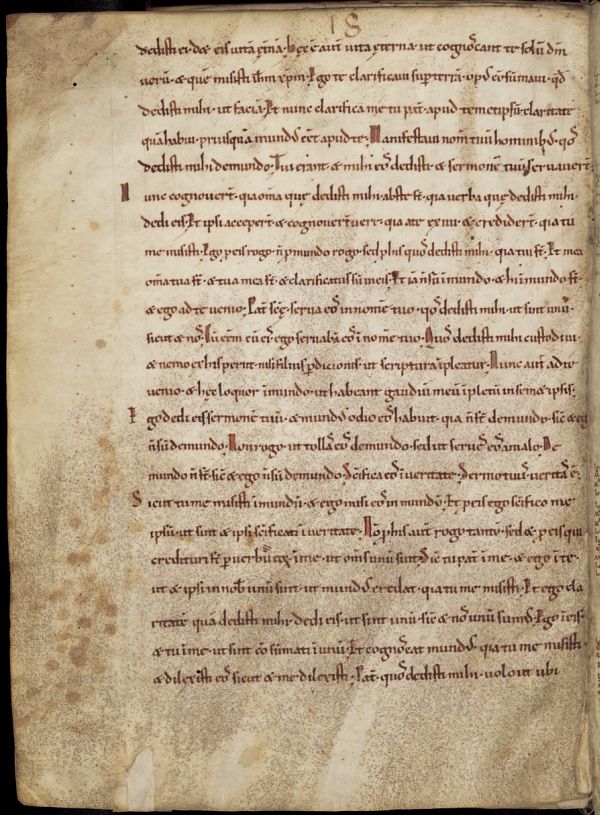 18
dedisti ei · det eis uitā ęt̄nā · Hęc ē aut̄ uita ęterna · ut cognoscant te solū dm̄
uerū · & quē misisti ihm̄ xp̄m · Ego te clarificaui sup terrā · op̄ consūmaui · qd̄
dedisti mihi · ut faciā · Et nunc clarifica me tu pat̄ · apud temetipsū · claritate
quā habui · priusquā mund᾽ eēt apud te · Manifestaui nom̄ tuū hominib᾽ · quos
dedisti mihi de mundo · Tui erant · & mihi eos dedisti · & sermonē tuū seruauer̄t ·
Nunc cognouer̄t · quia om̄a quę dedisti mihi · abs te st̄ · quia uerba quę dedisti mihi ·
dedi eis · Et ipsi acceper̄t · & cognouer̄t uere · quia a te exiui · & credider̄t · quia tu
me misisti · Ego p eis rogo · n̄ p mundo rogo · sed p his quos dedisti mihi · quia tui st̄ · Et mea
om̄a tua st̄ · & tua mea st̄ · & clarificatus sū in eis · Et iā n̄ sū ī mundo · & hi ī mundo st̄ ·
& ego ad te uenio · Pat̄ scē · serua eos in nomine tuo · quos dedisti mihi · ut sint unū ·
sicut & nos · Cū eēm cū eis · ego seruabā eos ī nomine tuo · Quos dedisti mihi custodiui ·
& nemo ex his periit · nisi filius pditionis · ut scriptura īpleatur · Nunc aut̄ ad te
uenio · & hęc loquor ī mundo · ut habeant gaudiū meū īpletū in sem&ipsis ·
Ego dedi eis sermonē tuū · & mund᾽ odio eos habuit · quia n̄ st̄ de mundo · sic̄ & ego
n̄ sū de mundo · Non rogo · ut tollas eos de mundo · sed ut serues eos a malo · De
mundo n̄ st̄ · sic̄ & ego n̄ sū de mundo · Scīfica eos ī ueritate · Sermo tuus ueritas ē ·
Sicut tu me misisti ī mundū · & ego misi eos in mundū · Et p eis ego scīfico me
ipsū · ut sint & ipsi scīficati ī ueritate · Nō p his aut̄ rogo tantū · sed & p eis qui
credituri st̄ p uerbū eoꝝ ī me · ut om̄s unū sint · Sic̄ tu pat̄ ī me · & ego ī te ·
ut & ipsi in nob̄ unū sint · ut mund᾽ credat · quia tu me misisti · Et ego cla
ritatē quā dedisti mihi · dedi eis · ut sint unū · sic̄ & nos unū sum᾽ · Ego ī eis ·
& tu ī me · ut sint consūmati ī unū · Et cognoscat mund᾽ · quia tu me misisti ·
& dilexisti eos · sicut & me dilexisti · Pat̄ · quos dedisti mihi · uolo ut ubi